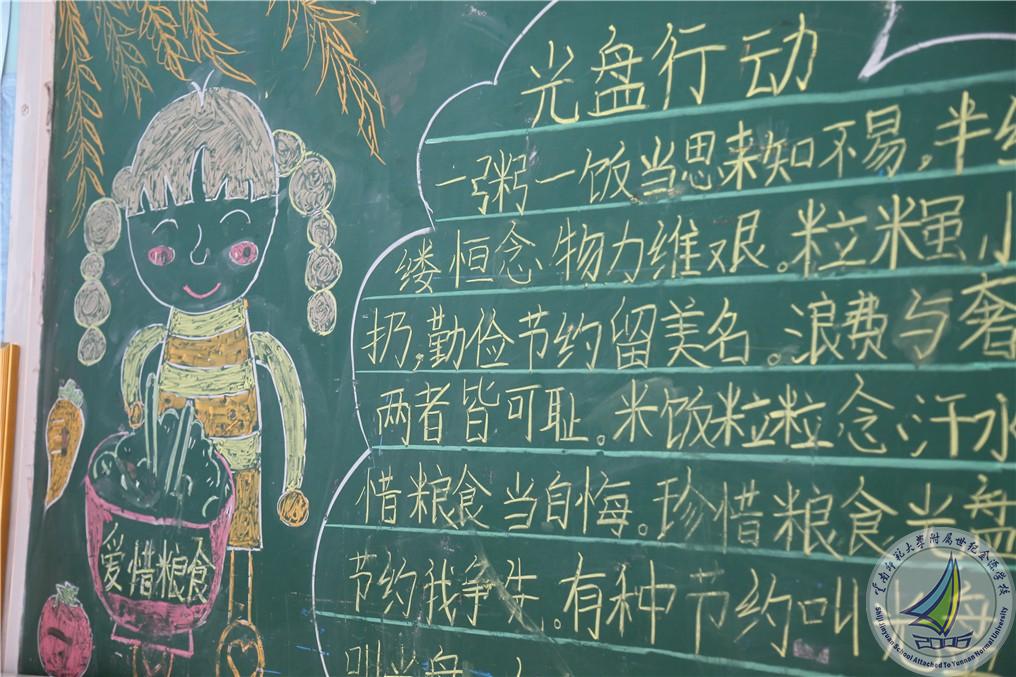 光盘行动
一粥一饭当思来知不易,半
缕恒念物力维艰。粒米虽
扔,勤俭节约留美名。浪费与奢
两者皆可耻。米饭粒粒念汗水
惜粮食当自悔。珍惜粮食光盘
节约我争先。有种节约叫
爱惜粮食
雲南师范大學附属世纪金源学校
2006
Shiji Jinyuan School Attached To Yunnan Normal University